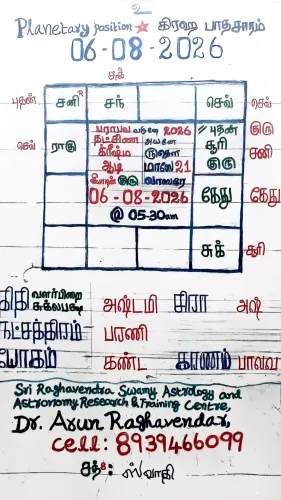 2
Planetary position ★ கிரஹ பாதசாரம்
06-08-2026
சுக்
புதன் சனி R சந் செவ் செவ்
பராபவ வருஷ 2026 // புதன் குரு
செவ் ராகு தட்சிண அயனே சூரி சனி
க்ரீஷ்ம ருதௌ குரு
ஆடி மாஸே 21
குரு வாஸரே கேது கேது
06-08-2026
@ 05-30am
சுக் சூரி
திதி வளர்பிறை சுக்லபக்ஷ அஷ்டமி சிரா அஷ்
நட்சத்திரம் பரணி
யோகம் கண்ட கரணம் பாலவ
Sri Raghavendra Swamy Astrology and
Astronomy Research & Training Centre,
Dr. Arun Raghavendar,
Cell: 8939466099
சந் 8: ஸ்வாதி